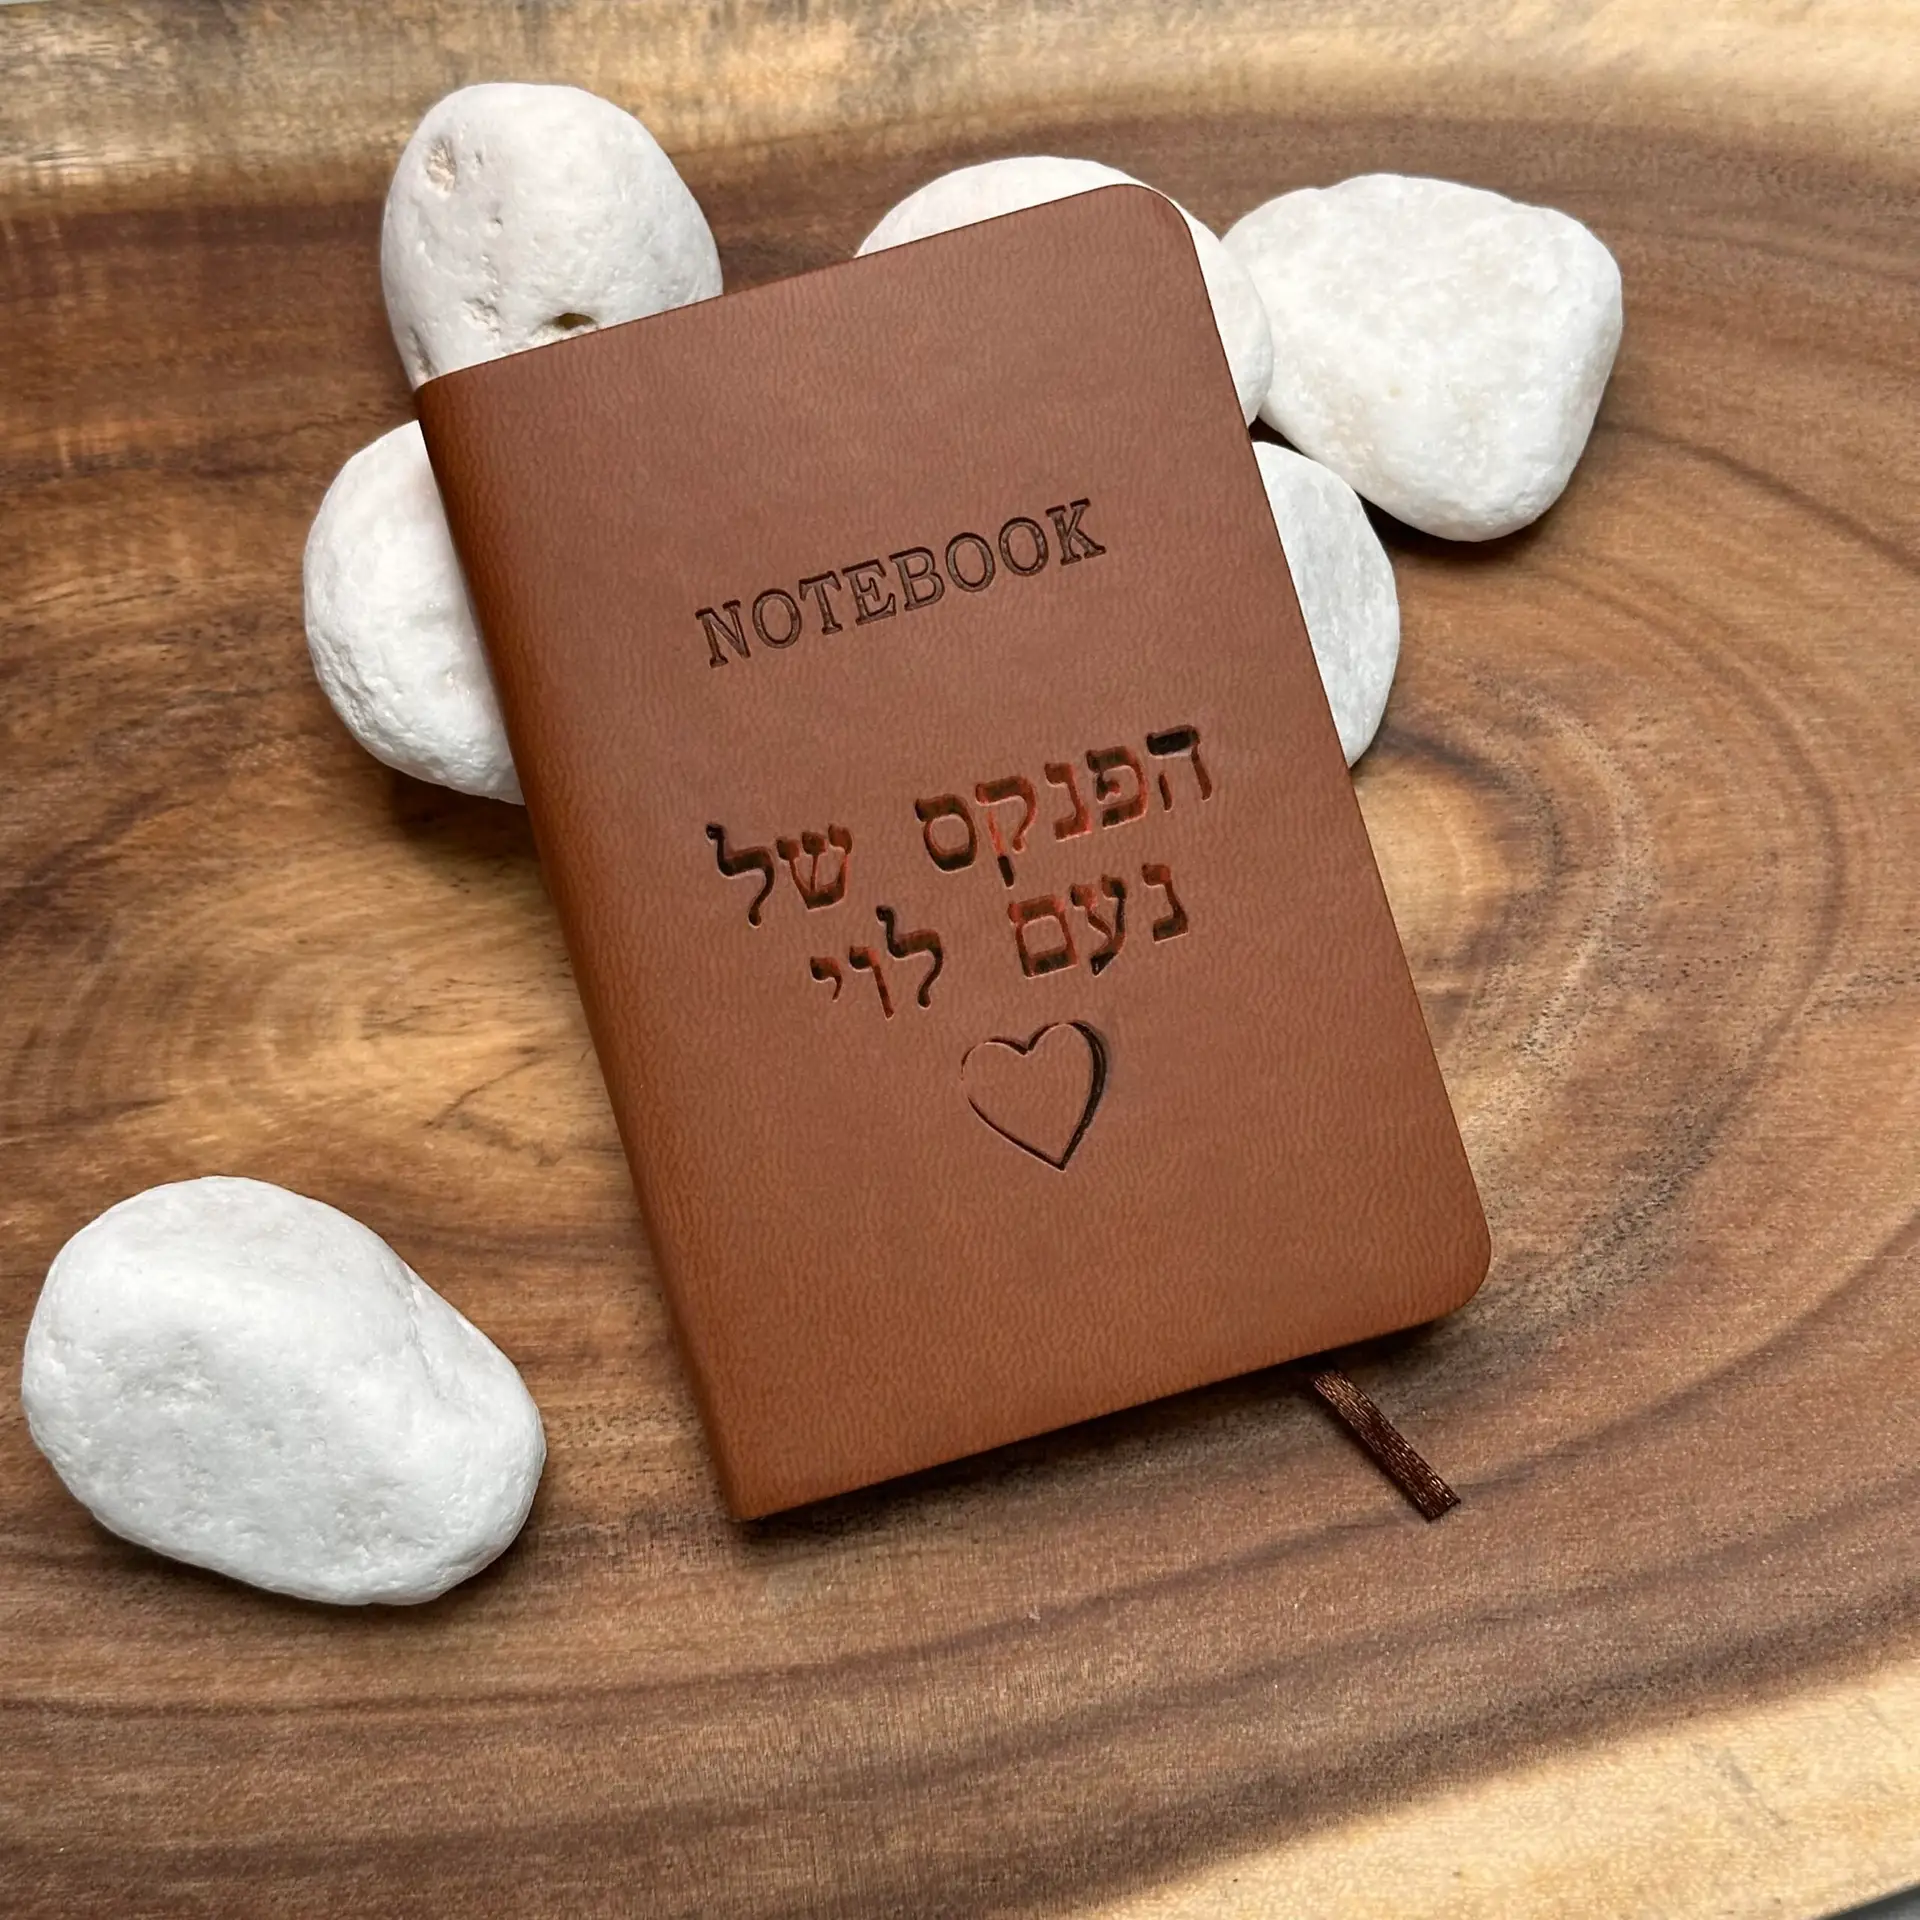 NOTEBOOK
הפנקס של
נעם לוי